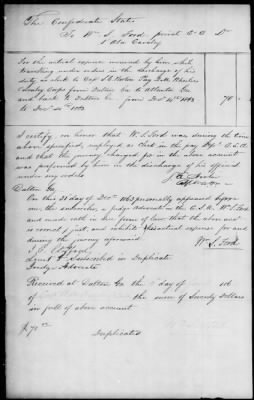 The Confederate States
To W. S. Ford privt Co C Dr
1 Ala Cavalry
For the actual expense incurred by him while
travelling under orders in the discharge of his
duty as clerk to Capt
Cavalry Corps from Dalton Ga to Atlanta Ga
and back to Dalton Ga from Dec 14th 1863
to Dec 1863
70
I certify on honor that W. S. Ford was during the time
above specified, employed as clerk in the pay Dpt C.S.A
and that the journey charged for in the above account
was performed by him in the discharge of his official
under my orders
Dalton Ga
On this 31 day of Decr 1863 personally appeared before
me the subscriber, a Judge Advocate in the C.S.A. Wm S. Ford
and made oath in due form of law that the above acct
is correct & just, and exhibits actual expense for and
during the journey aforesaid
Wm S. Ford
Subscribed in Duplicate
Judge Advocate
Received at Dalton Ga the day of 186
of the sum of Seventy Dollars
in full of above account
$70
Duplicates